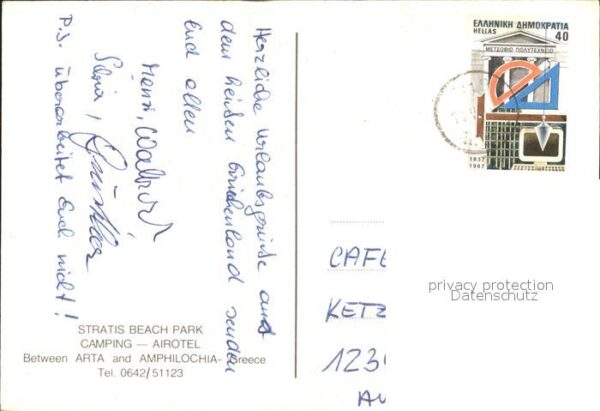 Herzliche Urlaubsgrüße aus
dem heißen Griechenland senden
Euch allen
Heinz, Waltraud
Silvia,
P.S. Überarbeitet Euch nicht!
STRATIS BEACH PARK
CAMPING — AIROTEL
Between ARTA and AMPHILOCHIA- Greece
Tel. 0642/51123
ΕΛΛΗΝΙΚΗ ΔΗΜΟΚΡΑΤΙΑ
HELLAS 40
ΜΕΤΣΟΒΙΟ ΠΟΛΥΤΕΧΝΕΙΟ
1837
1987
CAFE
KETZ
123
AU
privacy protection
Datenschutz